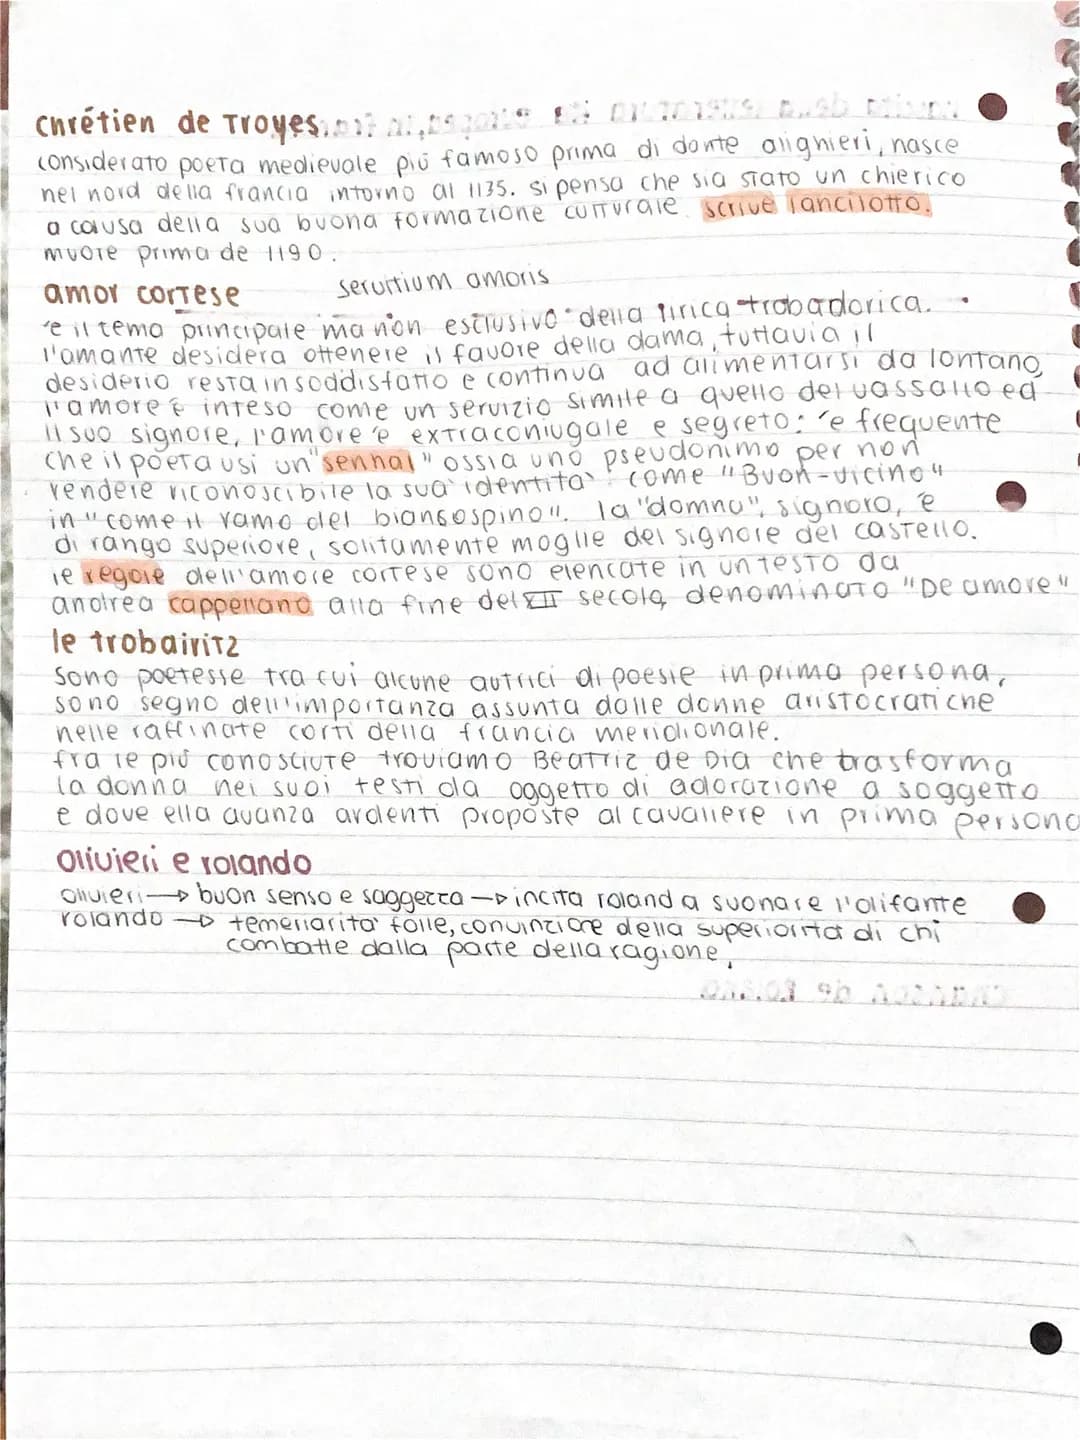 chrétien de Troyes
considerato poeta medievale più famoso prima di dante alighieri, nasce
nel nord della francia intorno al 1135. si pensa che sia stato un chierico
a causa della sua buona formazione culturale. scrive lancilotto.
muore prima de 1190.
amor cortese servitium amoris
è il tema principale ma non esclusivo della lirica trobadorica.
l'amante desidera ottenere il favore della dama, tuttavia il
desiderio resta insoddisfatto e continua ad alimentarsi da lontano,
l'amore è inteso come un servizio simile a quello del vassallo ed
il suo signore, l'amore è extraconiugale e segreto: è frequente
che il poeta usi un "sennal" ossia uno pseudonimo per non
rendere riconoscibile la sua identità come "Buon-vicino"
in "come il ramo del biancospino". la "domna", signora, è
di rango superiore, solitamente moglie del signore del castello.
le regole dell'amore cortese sono elencate in un testo da
andrea cappellano alla fine del XII secolo, denominato "De amore"
le trobairitz
sono poetesse tra cui alcune autrici di poesie in prima persona,
sono segno dell'importanza assunta dalle donne aristocratiche
nelle raffinate corti della francia meridionale.
fra le più conosciute troviamo Beatriz de Dia che trasforma
la donna nei suoi testi da oggetto di adorazione a soggetto
e dove ella avanza ardenti proposte al cavaliere in prima persona
olivieri e rolando
olivieri → buon senso e saggezza → incita roland a suonare l'olifante
rolando → temerarità folle, convinzione della superiorità di chi
combatte dalla parte della ragione,